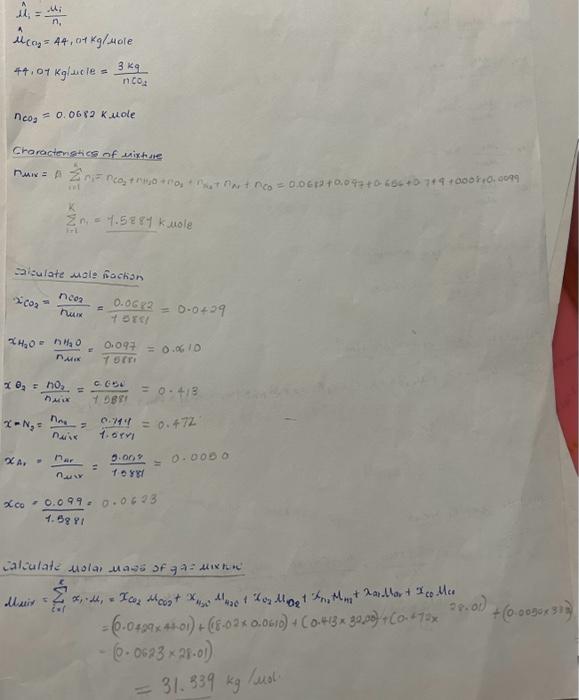 M̂i = Mi / ni
M̂CO2 = 44,01 Kg/Mole
44,01 Kg/Mole = 3 kg / nCO2
nCO2 = 0.0682 KMole
Characteristics of mixture
nMix = Σ ni = nCO2 + nH2O + nO2 + nN2 + nAr + nCO = 0.0682 + 0.097 + 0.656 +
K
Σ ni = 1.5881 KMole
i=1
Calculate mole fraction
xCO2 = nCO2 / nMix = 0.0682 / 1.5881 = 0.0429
xH2O = nH2O / nMix = 0.097 / 1.5881 = 0.0610
xO2 = nO2 / nMix = 0.656 / 1.5881 = 0.413
x N2 = nN2 / nMix = / 1.5881 = 0.472
xAr = nAr / nMix = 0.008 / 1.5881 = 0.0050
xCO = 0.099 / 1.5881 = 0.0623
Calculate Molar Mass of gas Mixture
MMix = Σ xi · Mi = xCO2 MCO2 + xH2O MH2O + xO2 MO2 + xN2 MN2 + xAr MAr + xCO MCO
= (0.0429 x 44.01) + (18.02 x 0.0610) + (0.413 x 32.00) + (0.472 x 28.01) + (0.0050 x
(0.0623 x 28.01)
= 31.339 kg/Mol.